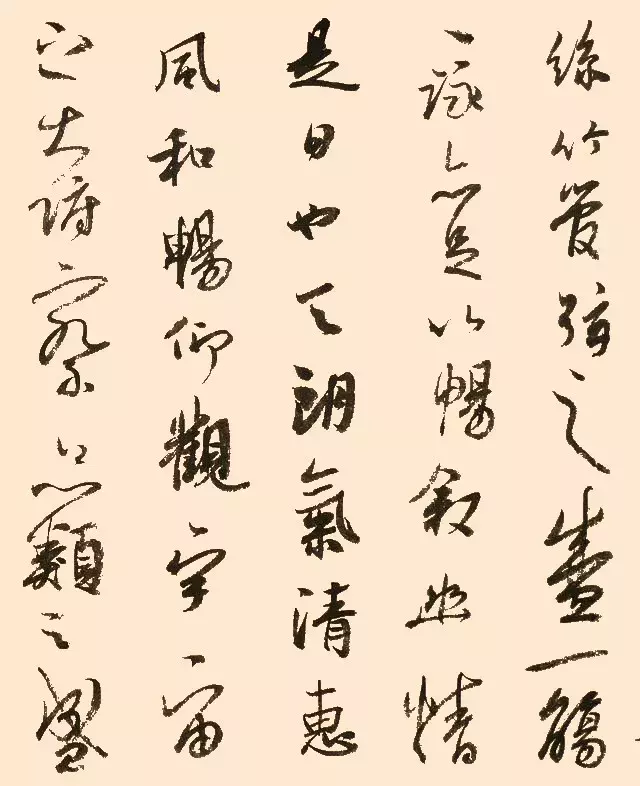 絲竹管弦之盛一觴
一詠亦足以暢叙幽情
是日也天朗氣清惠
風和暢仰觀宇宙
之大俯察品類之盛